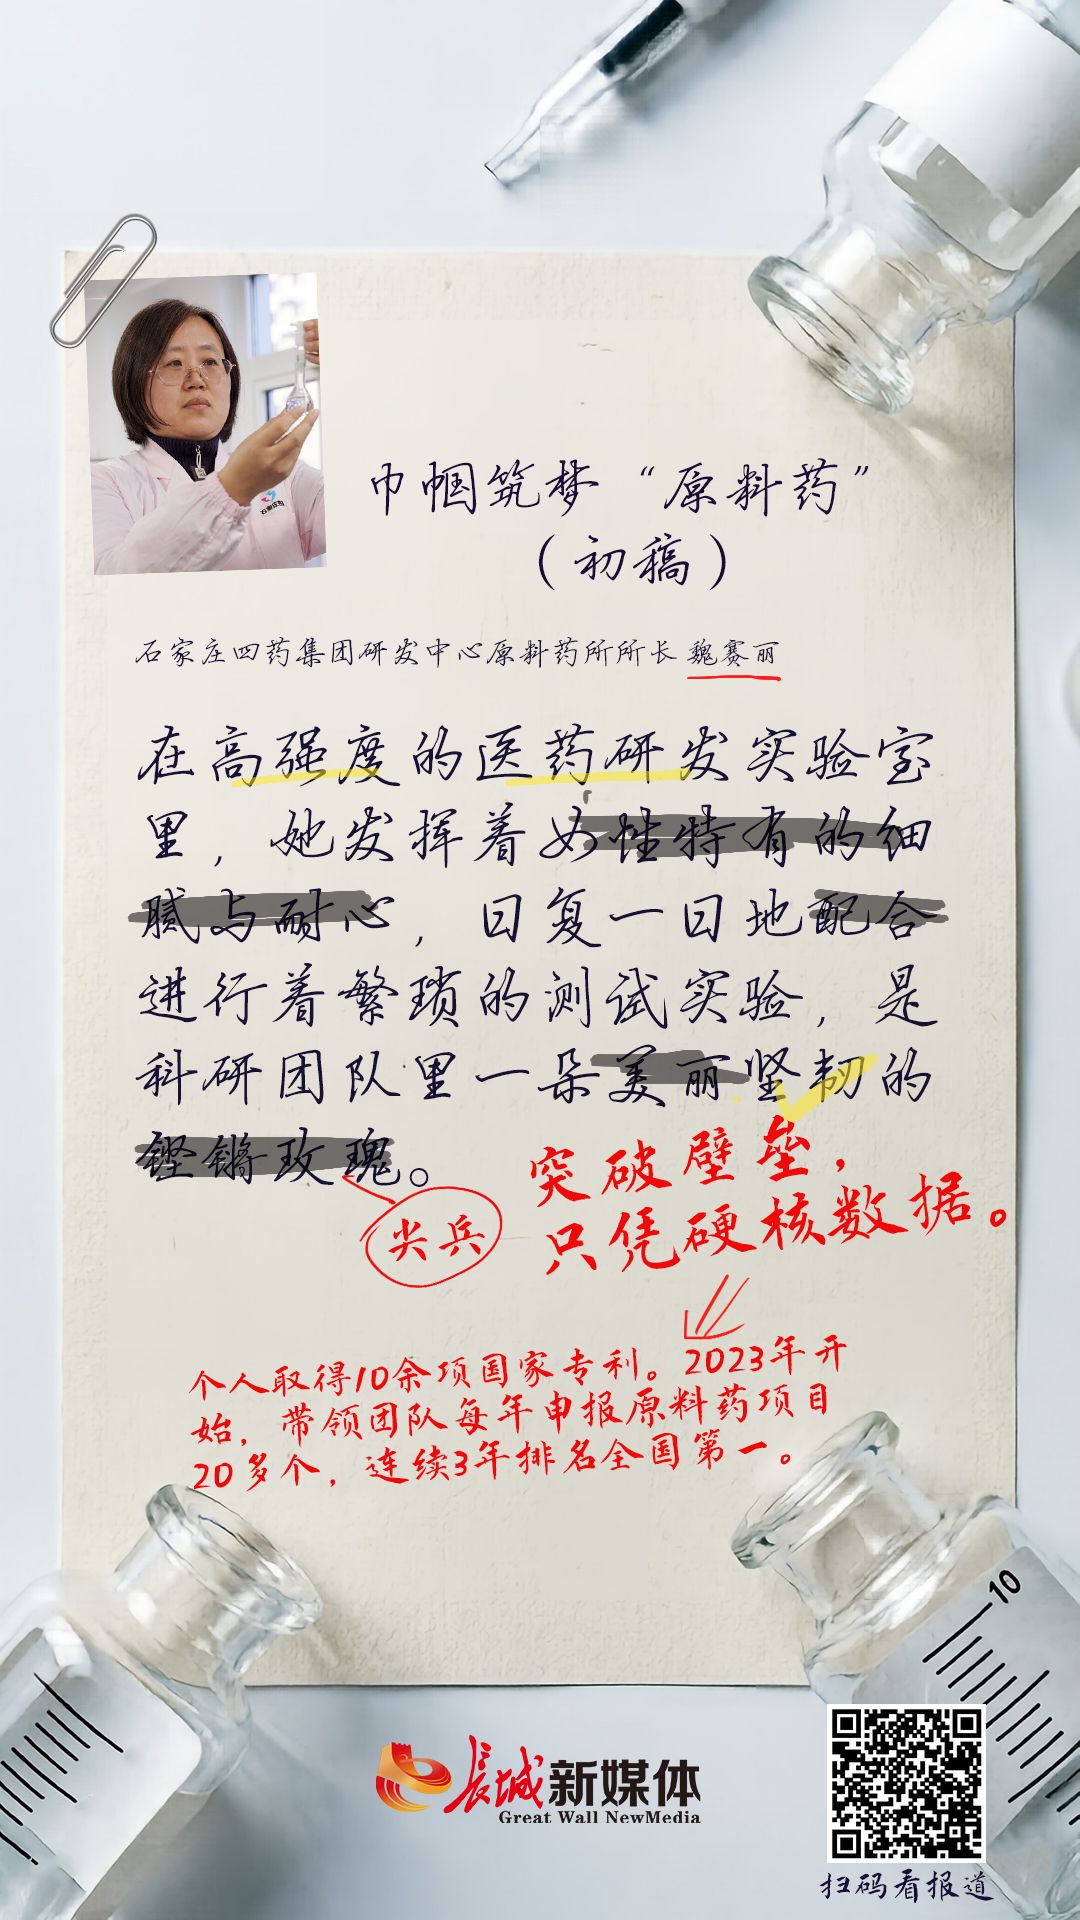 巾帼筑梦“原料药”
（初稿）
石家庄四药集团研发中心原料药所所长 魏赛丽
在高强度的医药研发实验室
里，她发挥着女性特有的细
腻与耐心，日复一日地配合
进行着繁琐的测试实验，是
科研团队里一朵美丽坚韧的
铿锵玫瑰。
尖兵
突破壁垒，
只凭硬核数据。
个人取得10余项国家专利。2023年开
始，带领团队每年申报原料药项目
20多个，连续3年排名全国第一。
10
长城新媒体
Great Wall NewMedia
扫码看报道